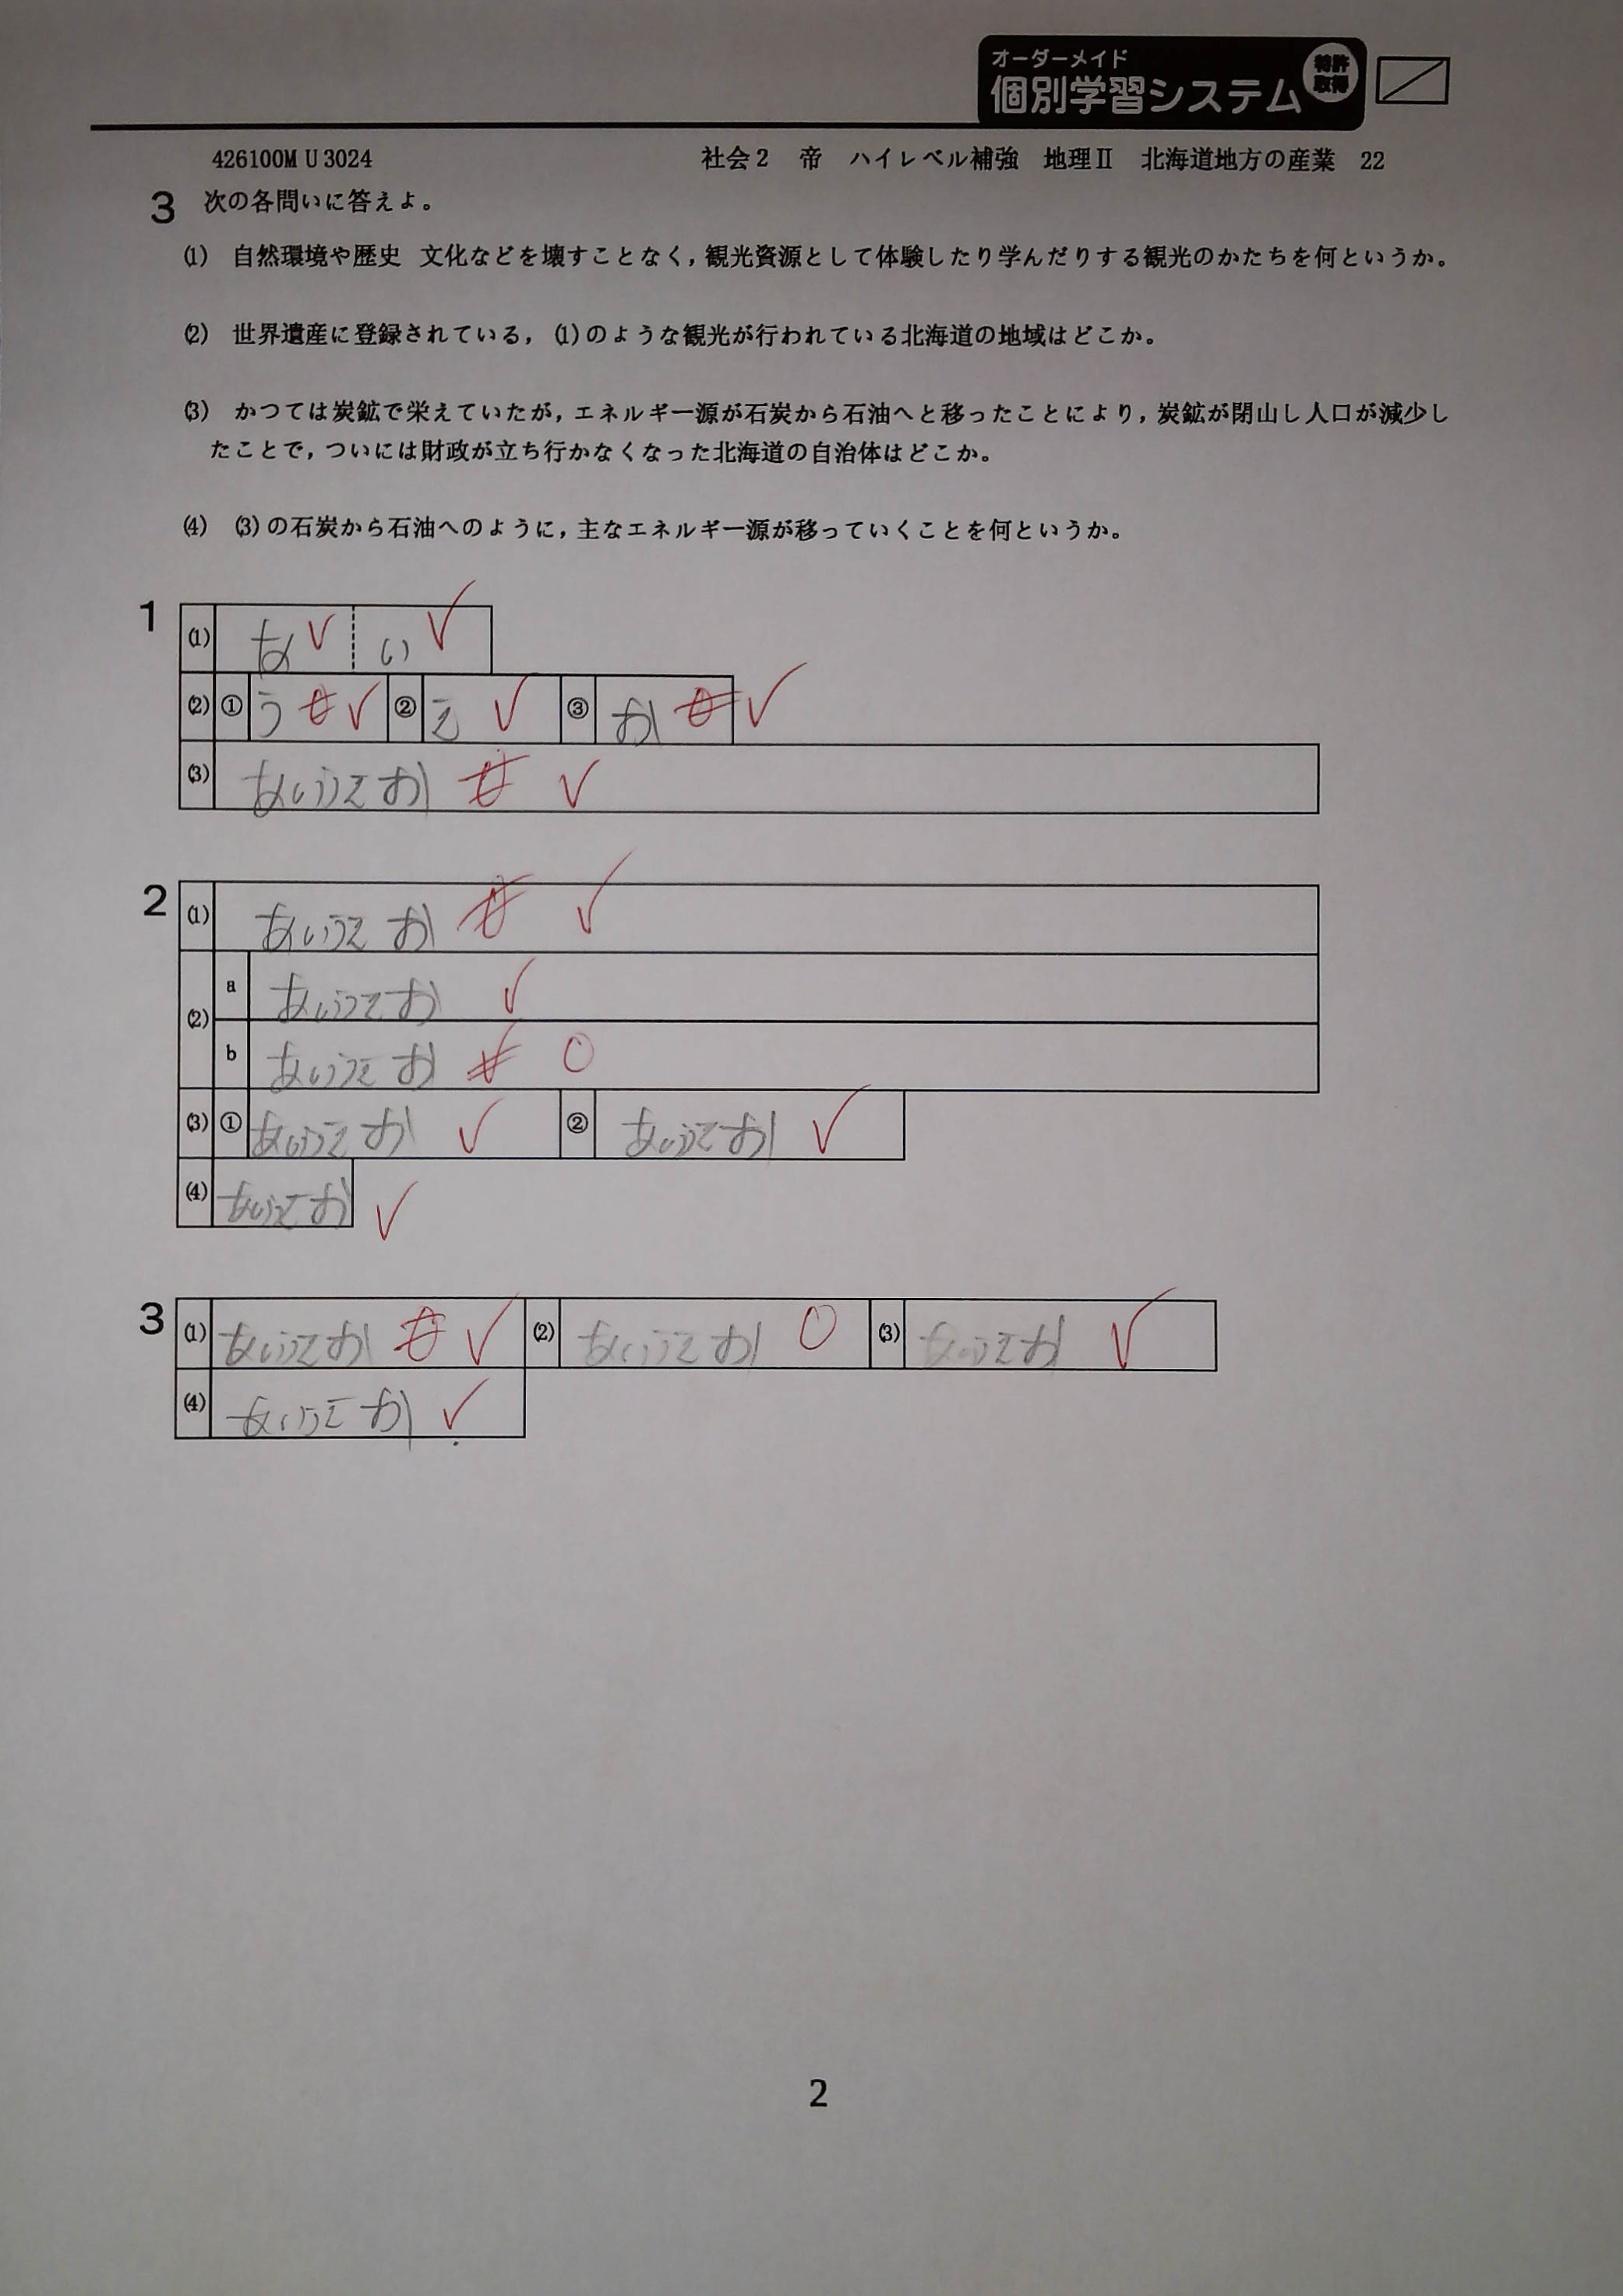 オーダーメイド
個別学習システム
特許
取得
426100M U 3024 社会2 帝 ハイレベル補強 地理Ⅱ 北海道地方の産業 22
3 次の各問いに答えよ。
(1) 自然環境や歴史 文化などを壊すことなく,観光資源として体験したり学んだりする観光のかたちを何というか。
(2) 世界遺産に登録されている,(1)のような観光が行われている北海道の地域はどこか。
(3) かつては炭鉱で栄えていたが,エネルギー源が石炭から石油へと移ったことにより,炭鉱が閉山し人口が減少し
たことで,ついには財政が立ち行かなくなった北海道の自治体はどこか。
(4) (3)の石炭から石油へのように,主なエネルギー源が移っていくことを何というか。
1
(1) あ い
(2) ① う ② え ③ お
(3) あいうえお
2
(1) あいうえお
(2)
a あいうえお
b あいうえお
(3) ① あいうえお ② あいうえお
(4) あいうえお
3
(1) あいうえお (2) あいうえお (3) あいうえお
(4) あいうえお
2